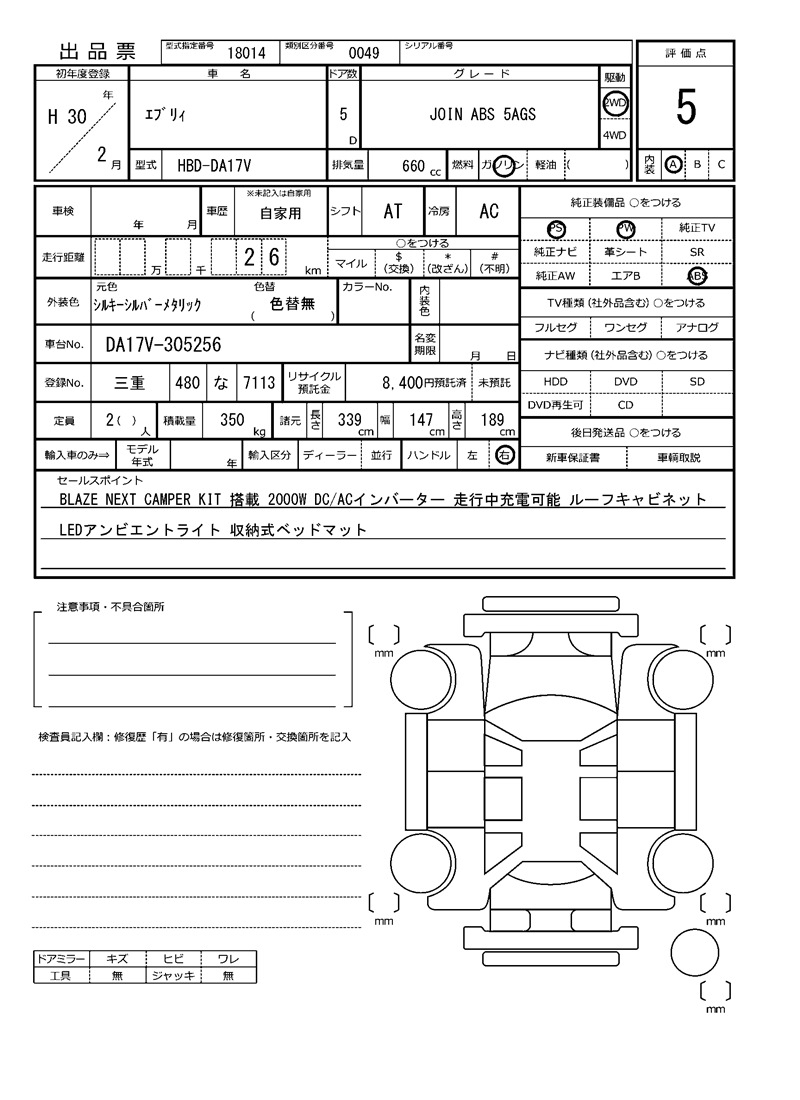 出品票 型式指定番号 18014 類別区分番号 0049 シリアル番号
評価点
初年度登録 車 名 ドア数 グレード 駆動
H 30 年 2 月 エブリィ 5 D JOIN ABS 5AGS 2WD 4WD
5
型式 HBD-DA17V 排気量 660 cc 燃料 ガソリン 軽油 ( )
内装 A B C
車検 年 月 車歴 ※未記入は自家用 自家用 シフト AT 冷房 AC
純正装備品 ○をつける
PS PW 純正TV
走行距離 万 千 2 6 km ○をつける
マイル $(交換) *(改ざん) #(不明)
純正ナビ 革シート SR
純正AW エアB ABS
外装色 元色 シルキーシルバーメタリック 色替 ( 色替無 ) カラーNo. 内装色
TV種類(社外品含む)○をつける
フルセグ ワンセグ アナログ
車台No. DA17V-305256 名変期限 月 日
ナビ種類(社外品含む)○をつける
登録No. 三重 480 な 7113 リサイクル預託金 8,400円預託済 未預託
HDD DVD SD
DVD再生可 CD
定員 2( ) 人 積載量 350 kg 諸元 長さ 339 cm 幅 147 cm 高さ 189 cm
後日発送品 ○をつける
輸入車のみ⇒ モデル年式 年 輸入区分 ディーラー 並行 ハンドル 左 右
新車保証書 車輌取説
セールスポイント
BLAZE NEXT CAMPER KIT 搭載 2000W DC/ACインバーター 走行中充電可能 ルーフキャビネット
LEDアンビエントライト 収納式ベッドマット
注意事項・不具合箇所
mm mm
検査員記入欄：修復歴「有」の場合は修復箇所・交換箇所を記入
mm mm
ドアミラー キズ ヒビ ワレ
工具 無 ジャッキ 無
mm